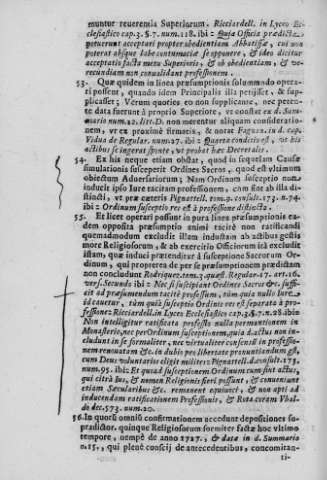 muntur reuerentia Superiorum. Ricciardell. in Lyceo Ec-
clesiastico cap.3. §.7. num.118. ibi = Quia Officia prædicta
petuerunt acceptari propter obedientiam Abbatissæ, cui non
poterat absque labe contumaciæ se opponere, & ideo dicitur
acceptatio facta metu Superioris, & ob obedientiam, & ve-
recundiam non conualidant professionem.
53. Quæ quidem in linea præsumptionis solummodo opera-
ri possent, quando idem Principalis illa petijsset, & sup-
plicasset; Verum quoties eo non supplicante, nec peten-
te data fuerunt à proprio Superiore, vt constat ex d. Sum-
mario num.22. litt.D. non merentur aliquam consideratio-
nem, vt ex proximè firmatis, & notat Fagnan. in d. cap.
Vidua de Regular. num.127. ibi = Quarta conditio est, vt his
actibus se ingerat sponte, vt probat hæc Decretalis.
54. Ex his neque etiam obstat, quod in sequelam Causæ
simulationis susceperit Ordines Sacros, quod est vltimum
obiectum Aduersariorum; Nam Ordinum susceptio non
inducit ipso Iure tacitam professionem, cum sint ab illa di-
stincti, vt præ cæteris Pignattell. tom.9. consult.173. n.74.
ibi = Ordinum susceptio res est à professione distincta.
55. Et licet operari possunt in pura linea præsumptionis ea-
dem opposita præsumptio animi tacitè non ratificandi
quemadmodum excludit illam inductam ab actibus gestis
more Religiosorum, & ab exercitio Officiorum ità excludit
istam, quæ induci prætenditur à susceptione Sacrorum Or-
dinum, qui propterea de per se præsumptionem prædictam
non concludunt Rodriquez tom.3. quæst. Regular. 17. art.16.
vers. Secundo ibi = Nec si suscipiant Ordines Sacros &c. suffi-
cit ad præsumendum tacitè professum, tùm quia nullo Iure
id cauetur, tùm quia susceptio Ordinis res est separata à pro-
fessione; Ricciardell. in Lyceo Ecclesiastico cap.3. §.7. n.28. ibi =
Non intelligitur ratificata professio nulla permanentiam in
Monasterio, nec per Ordinum susceptionem, quia dd. actus non in-
cludunt in se formaliter, nec virtualiter consensū in professio-
nem renouatam &c. in dubio pro libertate pronuntiandum est,
cum Deus voluntarios eligit milites; Pignattell. d. consult.173.
num.95. ibi = Et quoad susceptionem Ordinum cum sint actus,
qui citrà ius, & nomen Religionis fieri possunt, & conueniunt
etiam Sæcularibus &c. remanent equiuoci, & non apti ad
inducendam ratificationem Professionis, & Rota coram Vbal-
do dec.573. num.20.
56. In quorū omniū confirmationem accedunt depositiones su-
pradictor. quinque Religiosorum formiter factæ hoc vltimo
tempore, nempè de anno 1727. & data in d. Summario
n.15., qui plenè conscij de antecedentibus, concomitan-
ti-